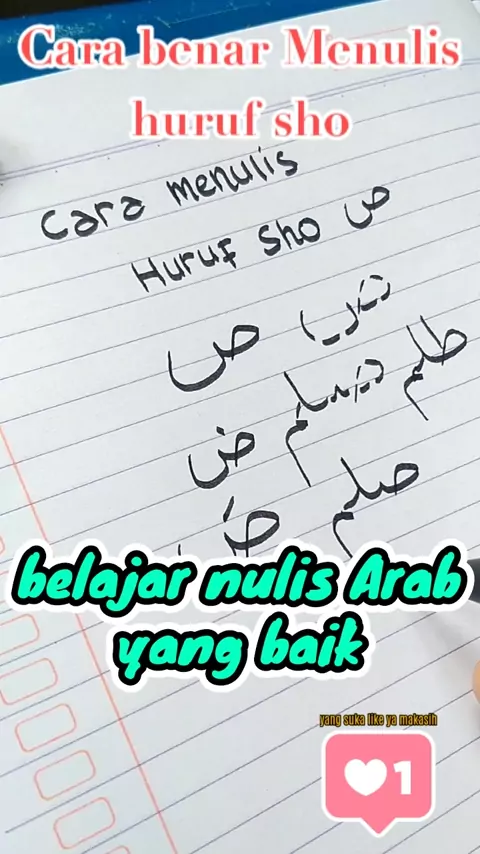 Cara benar Menulis
huruf sho
Cara menulis
Huruf Sho ص
ص
ظلم
ض
صلم
belajar nulis Arab
yang baik
yang suka like ya makasih
1